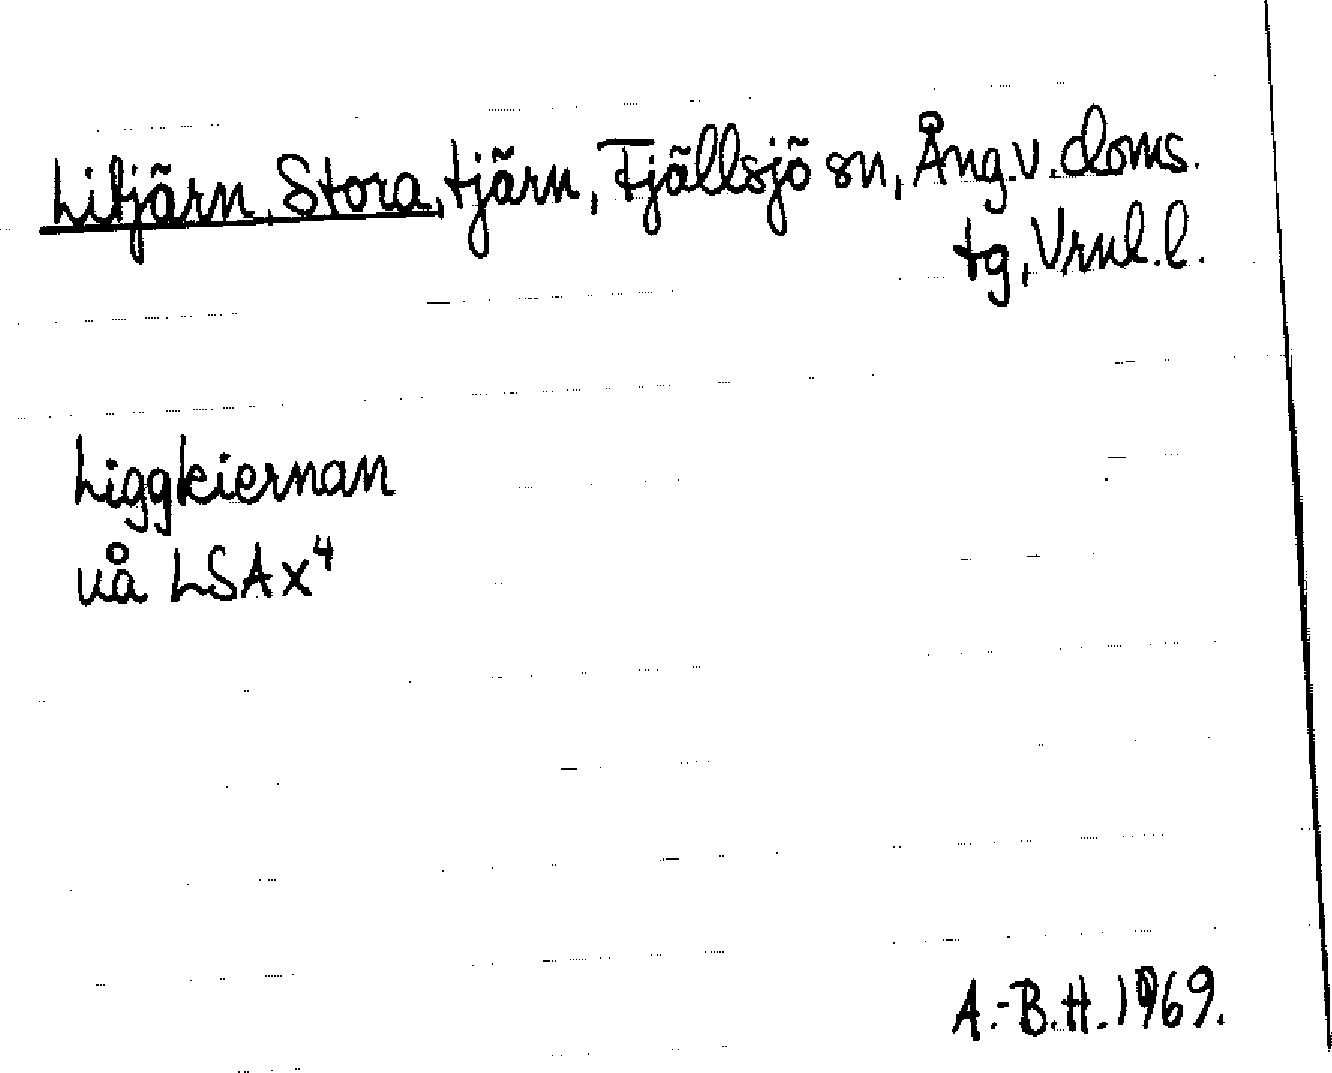 Litjärn, Stora, tjärn, Fjällsjö sn, Ång.v.doms.
tg, Vrnl.l.
Liggkiernan
uå LSA x⁴
A.-B.H. 1969.